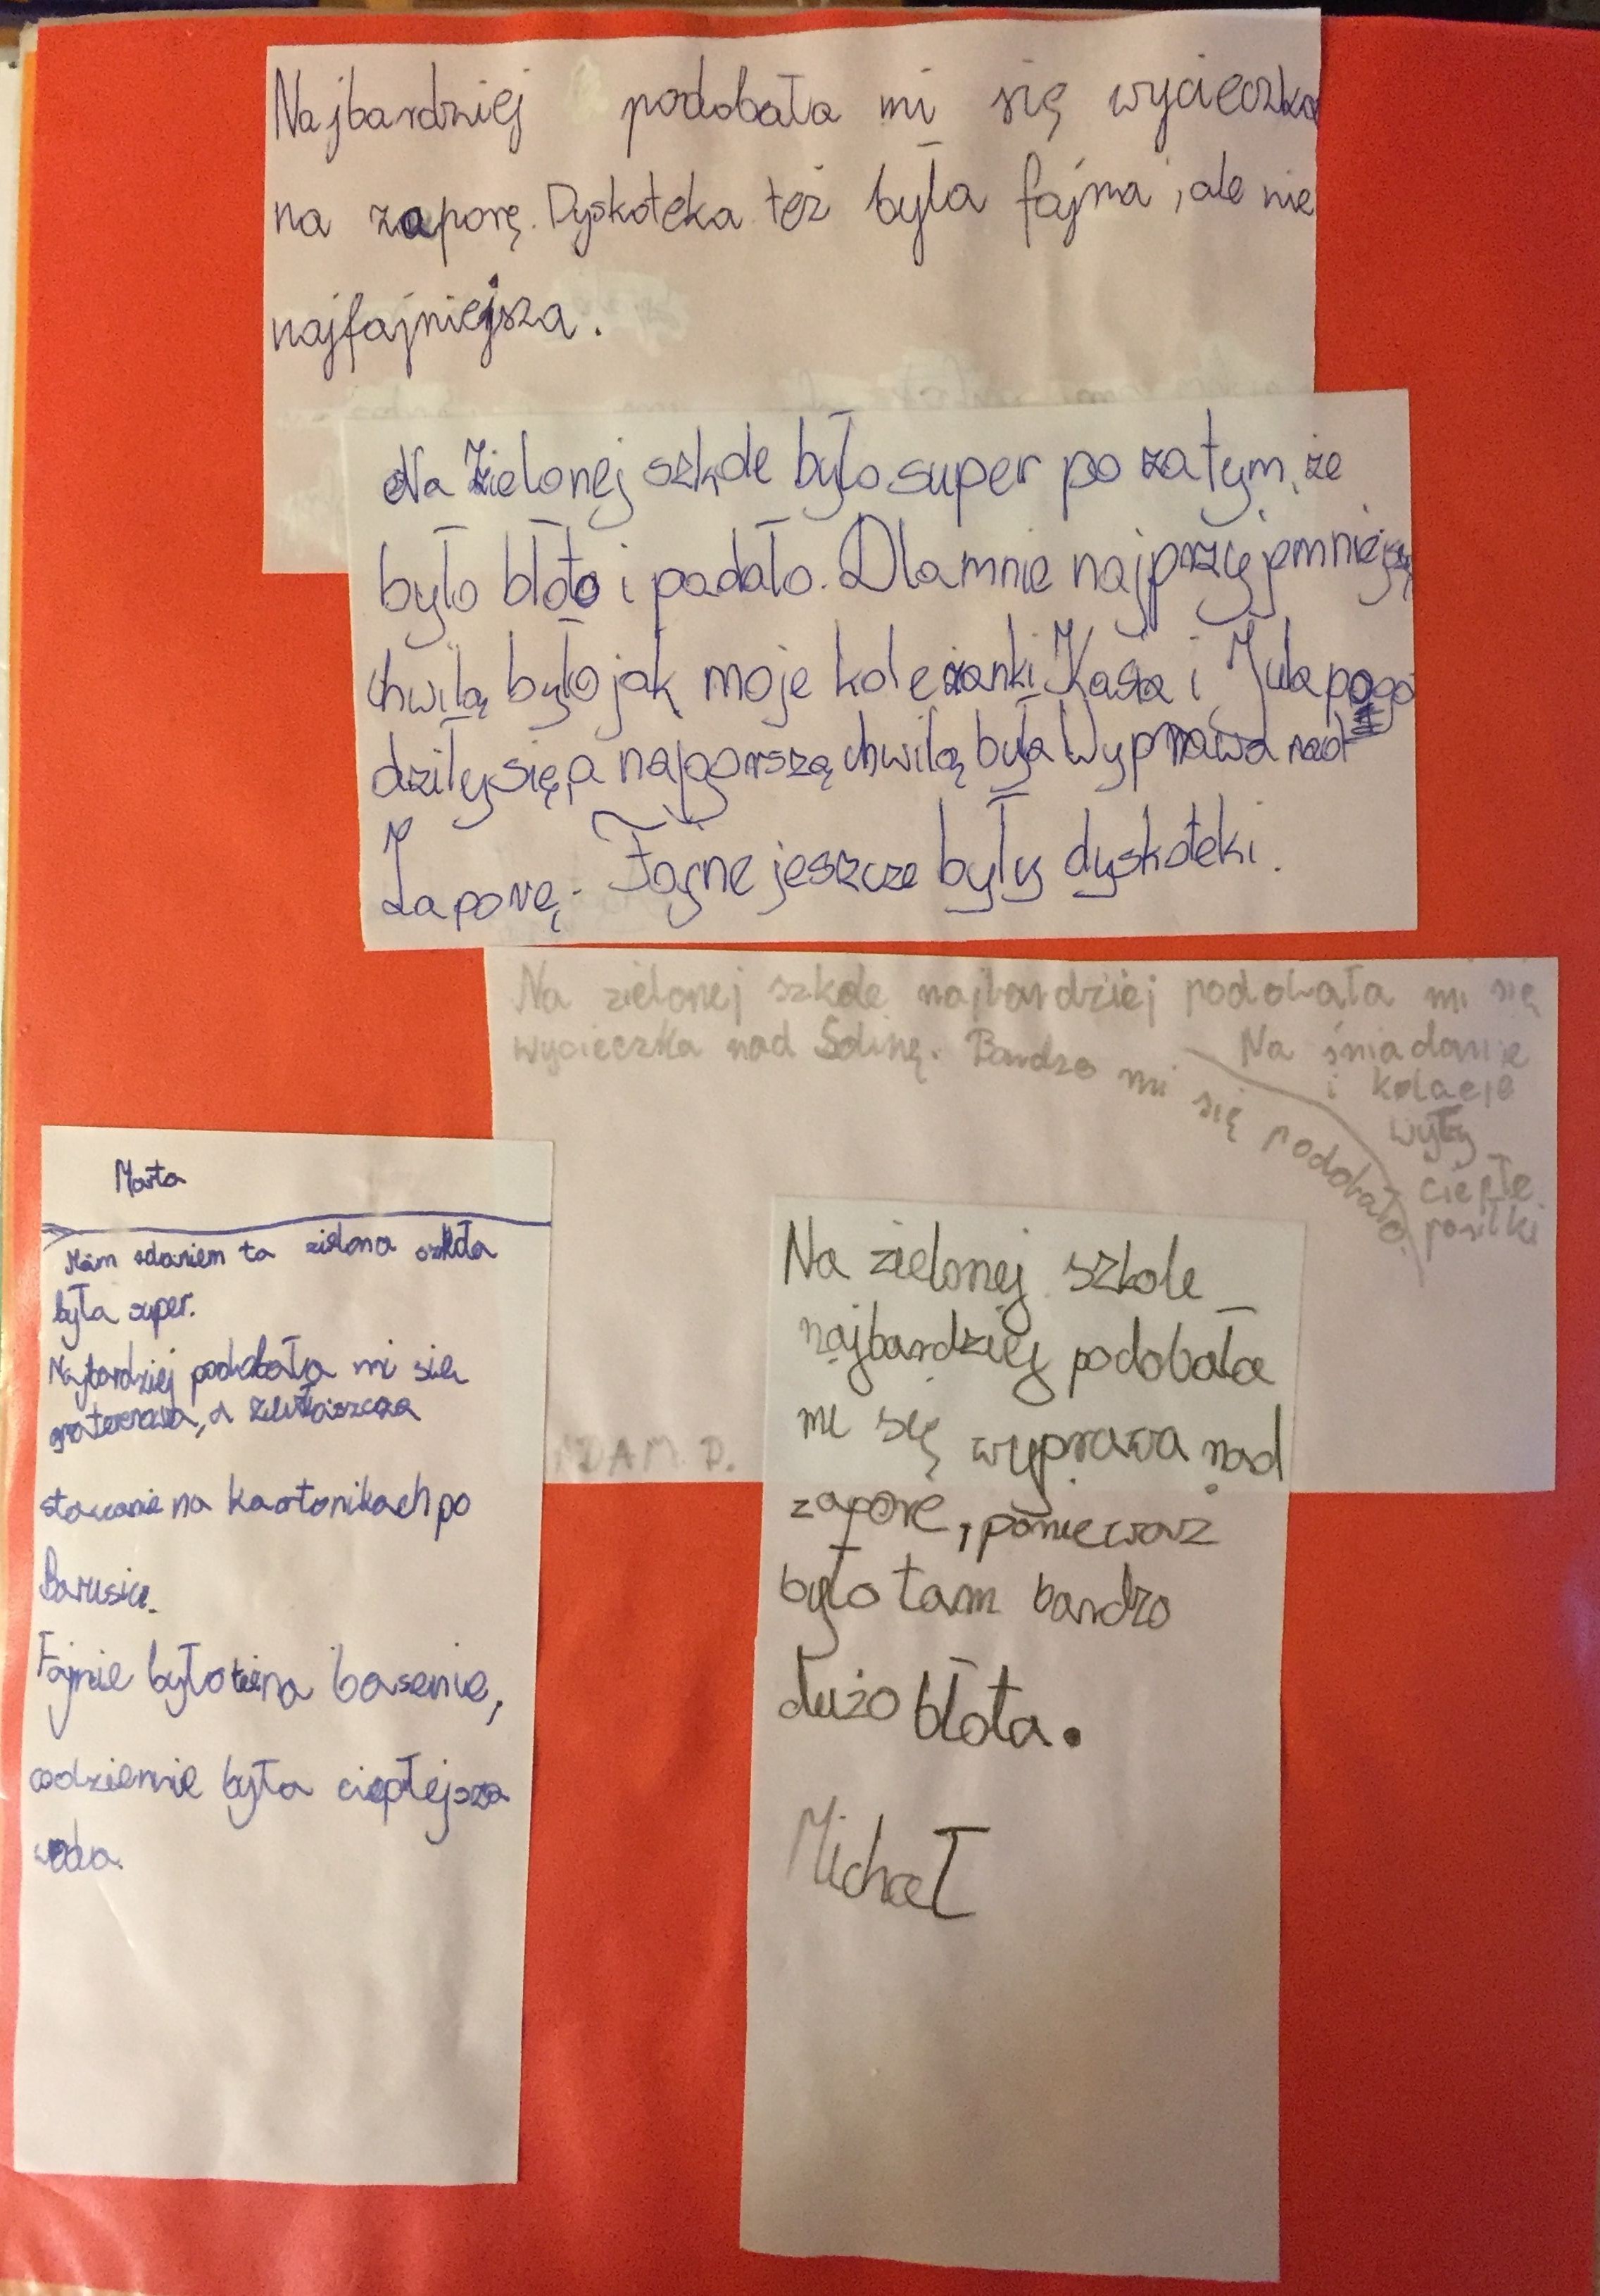 Najbardziej podobała mi się wycieczka
na zaporę. Dyskoteka też była fajna, ale nie
najfajniejsza.
Na Zielonej szkole było super po za tym, że
było błoto i padało. Dla mnie najprzyjemniejszą
chwilą było jak moje koleżanki Kasia i Jula pogo
dziły się, a najgorszą chwilą była Wyprawa nad
Zaporę. Fajne jeszcze były dyskoteki.
Na zielonej szkole najbardziej podobała mi się
wycieczka nad Solinę. Bardzo mi się podobało.
Na śniadanie
i kolacje
wyły
ciepłe
posiłki
ADAM. D.
Marta
Moim zdaniem ta zielona szkoła
była super.
Najbardziej podobała mi się
gra terenowa, a zwłaszcza
staczanie na kartonikach po
Fajnie było też na basenie,
codziennie była cieplejsza
woda.
Na zielonej szkole
najbardziej podobała
mi się wyprawa nad
zaporę, ponieważ
było tam bardzo
dużo błota.
Michał